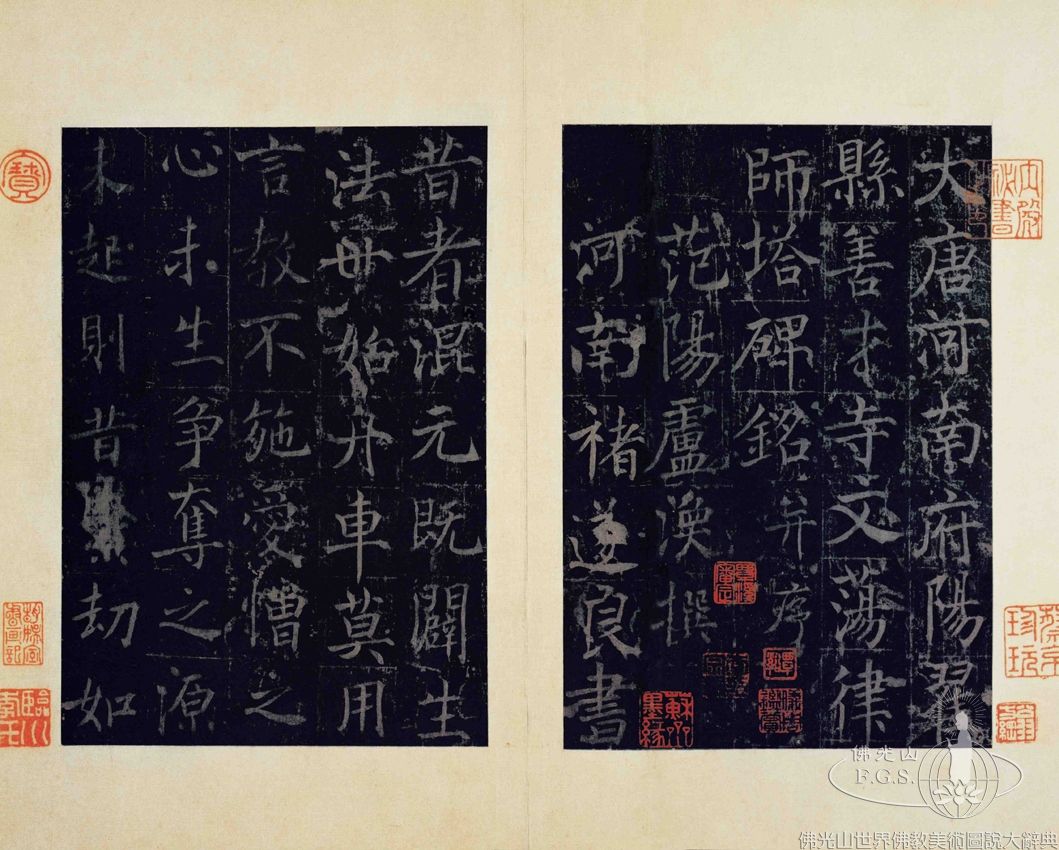 大唐河南府陽翟
縣善才寺文蕩律
師塔碑銘并序
范陽盧渙撰
河南褚遂良書
昔者混元既闢生
法毋始舟車莫用
言教不施愛憎之
心未生爭奪之源
未起則昔劫如
寶
臨川李氏
佛光山
F.G.S.
佛光山世界佛教美術圖說大辭典